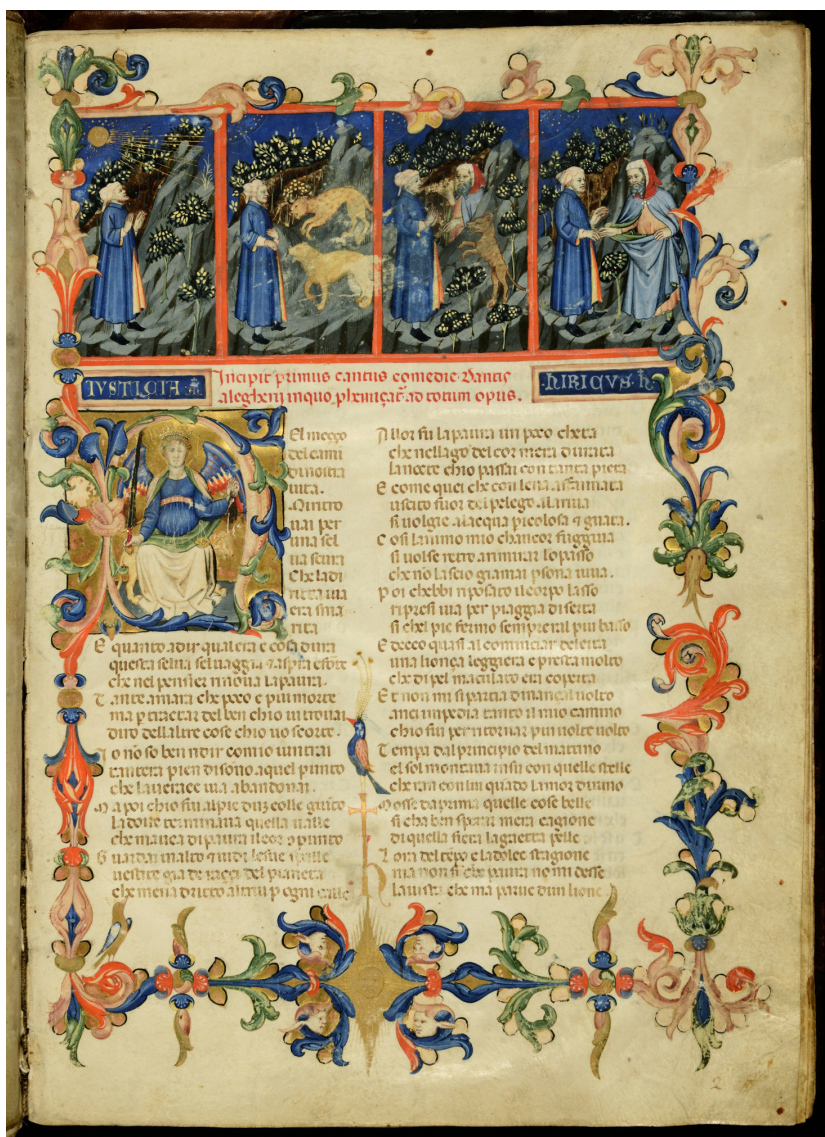 IVSTICIA
Incipit primus cantus comedie Dantis
alegherij inquo phemiçat ad totum opus.
HIRICVS
El meçço
del cami
di nostra
uita.
Mi ritro
uai per
una sel
ua scura
Che la di
ritta uia
era sma
rita
E quanto adir qualera e cosa dura
questa selua seluaggia & aspra e forte
che nel pensier rinoua la paura.
Tante amara che poco e piu morte
ma p tractar del ben chio ui trouai
diro dellaltre cose chio uo scorte.
Io no so ben ridir comio uintrai
tantera pien di sono aquel punto
che la uerace uia abandonai.
Ma poi chio fui alpie dun colle giunto
la doue terminaua quella ualle
che mauea di paura il cor punto
Guardai in alto & uidi le sue spalle
uestite gia de raggi del pianeta
che mena dritto altrui p ogni calle
Allor fu la paura un poco cheta
che nel lago del cor mera durata
la nocte chio passai con tanta pieta
E come quei che con lena affannata
uscito fuor del pelago ala riua
si uolgie alacqua picolosa & guata.
Cosi lanimo mio chancor fuggiua
si uolse retro a rimirar lo passo
che no lascio giamai psona uiua.
Poi chebbi riposato il corpo lasso
ripresi uia per piaggia diserta
si chel pie fermo sempreral piu basso
Et ecco quasi al cominciar delerta
una lionça leggiera e presta molto
che di pel maculato era coperta
Et non mi si partia dinançal uolto
anci impedia tanto il mio camino
chio fui per ritornar piu uolte uolto
Tempa dal principio del matino
el sol montaua insu con quelle stelle
cheran con lui quado lamor diuino
Mosse da prima quelle cose belle
si cha ben sperar mera cagione
di quella fiera la gaetta pelle
Lora del tepo e la dolce stagione
ma non si che paura no mi desse
la uista che ma parue dun lione
2